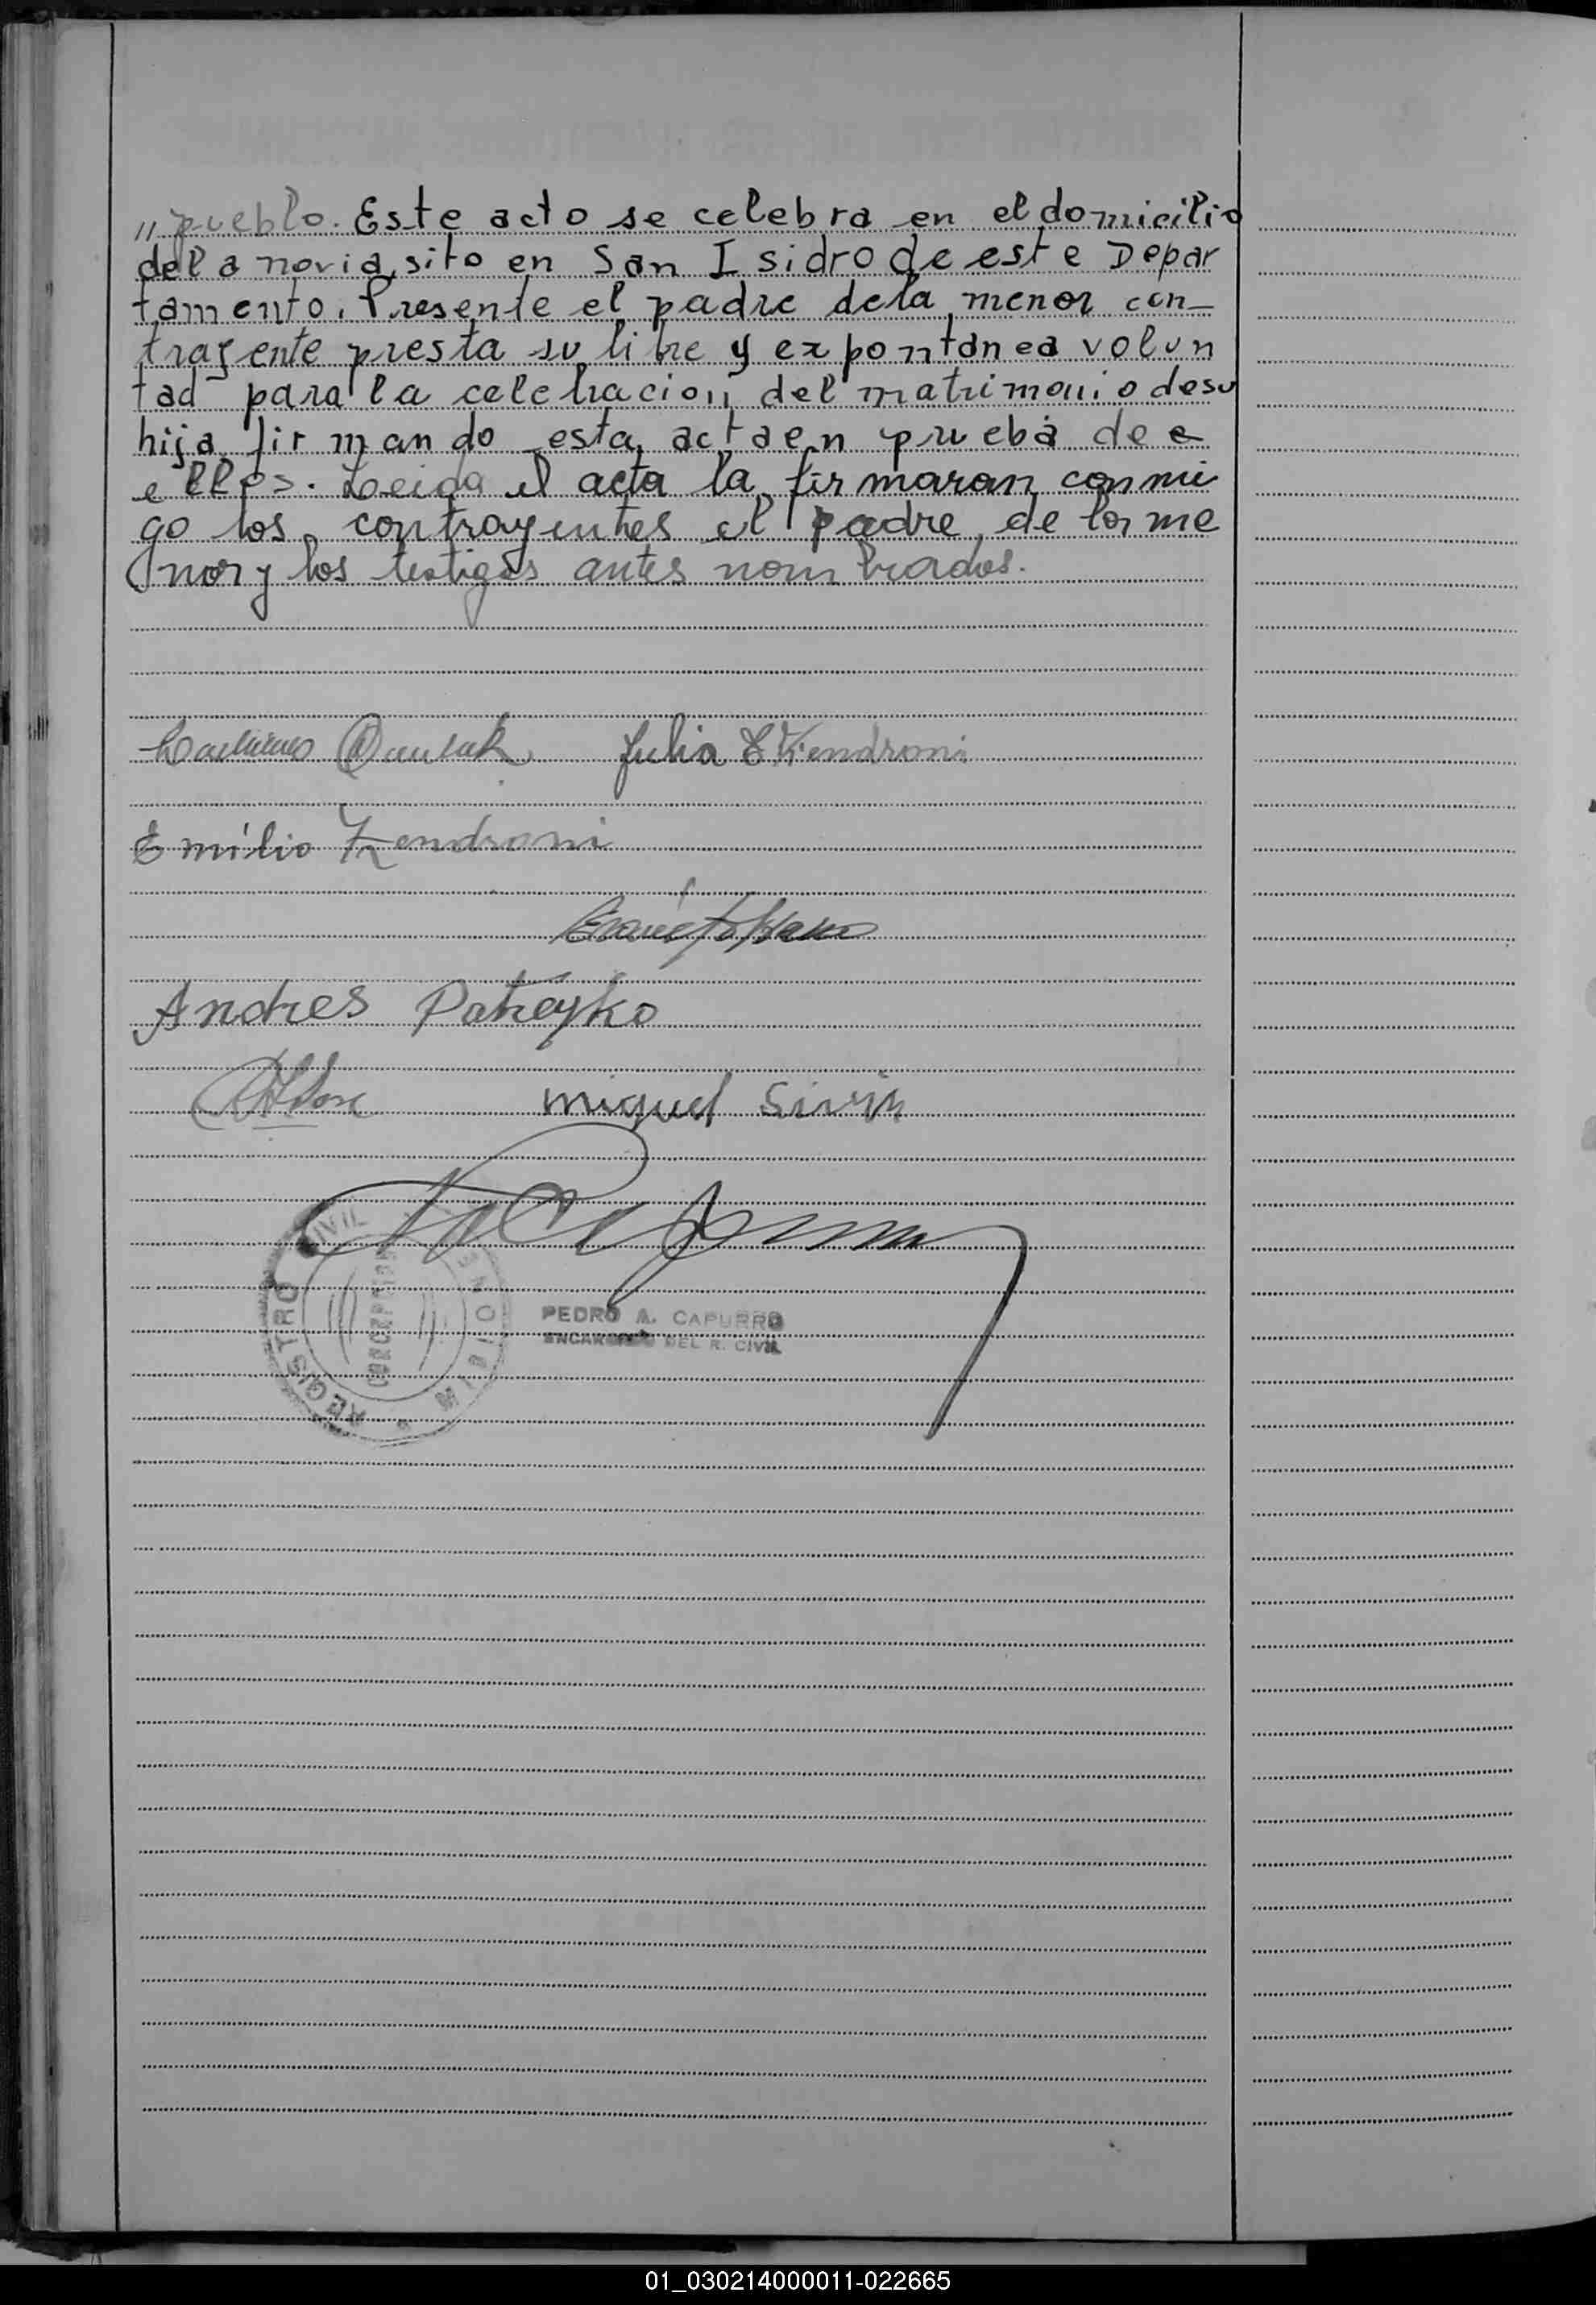 " pueblo. Este acto se celebra en el domicilio
de la novia, sito en San Isidro de este Depar
tamento. Presente el padre de la menor con-
trayente presta su libre y expontánea volun
tad para la celebracion del matrimonio de su
hija firmando esta acta en prueba de e
ellos. Leida el acta la firmaran conmi
go los contrayentes el padre de la me
nor y los testigos antes nombrados.
Julia E Zendroni
Emilio Zendroni
Andres Patreyko
miguel
REGISTRO CIVIL
CONCEPCION
MISIONES
PEDRO A. CAPURRO
ENCARGADO DEL R. CIVIL
01_030214000011-022665